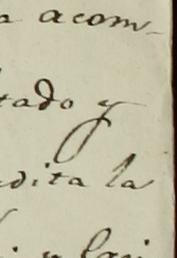 a acom-
tado y
dita la